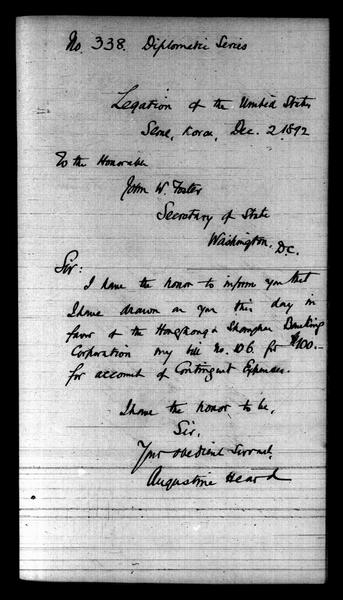 No. 338. Diplomatic Series
Legation of the United States
Seoul, Korea, Dec. 2 1892
To the Honorable
John W. Foster
Secretary of State
Washington, D.C.
Sir:
I have the honor to inform you that
I have drawn on you this day in
favor of the Hongkong & Shanghai Banking
Corporation my bill No. 106. for $100.—
for account of Contingent Expenses.
I have the honor to be,
Sir,
Your obedient Servant,
Augustine Heard